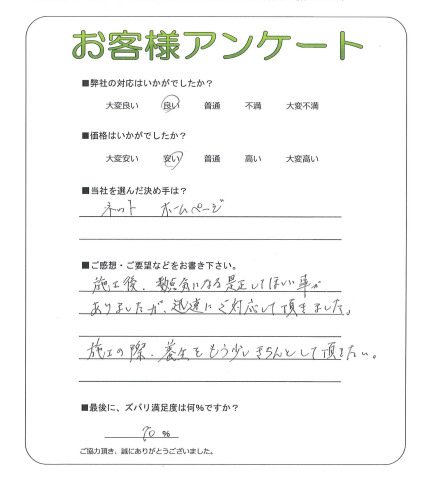 お客様アンケート
■弊社の対応はいかがでしたか？
大変良い 良い 普通 不満 大変不満
■価格はいかがでしたか？
大変安い 安い 普通 高い 大変高い
■当社を選んだ決め手は？
ネット ホームページ
■ご感想・ご要望などをお書き下さい。
施工後、数点気になる是正してほしい事が
ありましたが、迅速にご対応して頂きました。
施工の際、養生をもう少しきちんとして頂きたい。
■最後に、ズバリ満足度は何％ですか？
90 %
ご協力頂き、誠にありがとうございました。